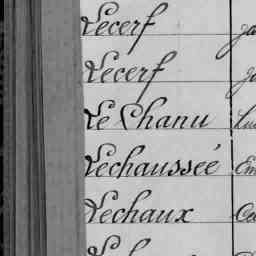 Lecerf
Lecerf
Le Chanu
Lechaussée
Lechaux